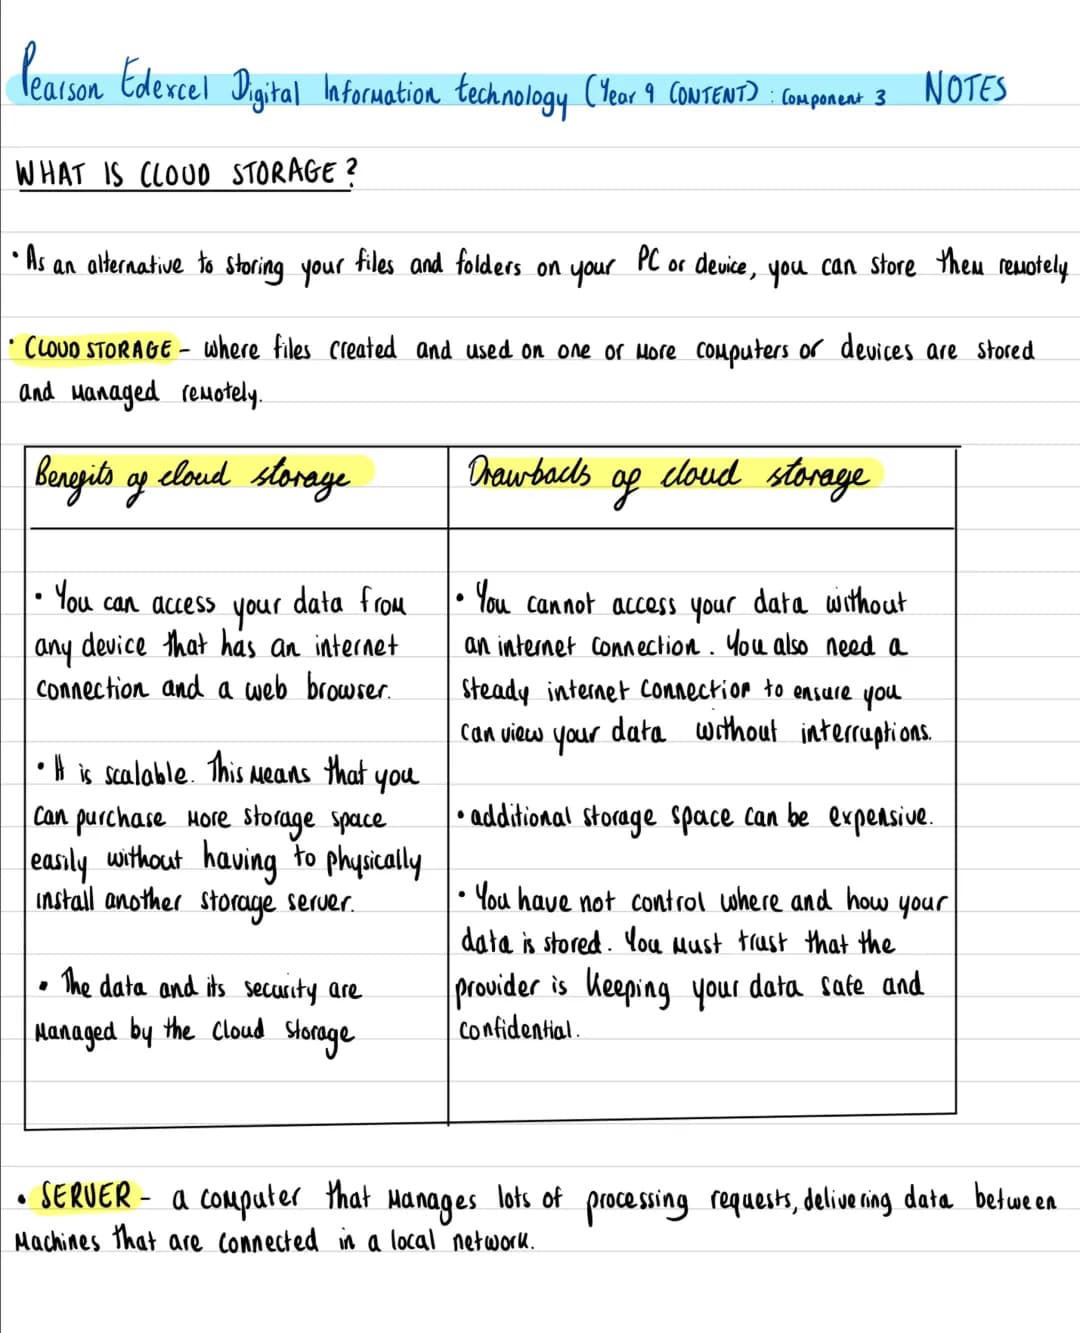 Pearson Edexcel Digital Information technology (Year 9 CONTENT) : Component 3 NOTES
WHAT IS CLOUD STORAGE?
• As an alternative to storing your files and folders on your PC or device, you can store them remotely
• CLOUD STORAGE – where files created and used on one or more computers or devices are stored
and managed remotely.
Benefits of cloud storage
• You can access your data from
any device that has an internet
connection and a web browser.
• It is scalable. This means that you
can purchase more storage space
easily without having to physically
install another storage server.
• The data and its security are
managed by the cloud storage
Drawbacks of cloud storage
• You cannot access your data without
an internet connection. You also need a
steady internet connection to ensure you
can view your data without interruptions.
• additional storage space can be expensive.
• You have not control where and how your
data is stored. You must trust that the
provider is keeping your data safe and
confidential.
• SERVER – a computer that manages lots of processing requests, delivering data between
machines that are connected in a local network.